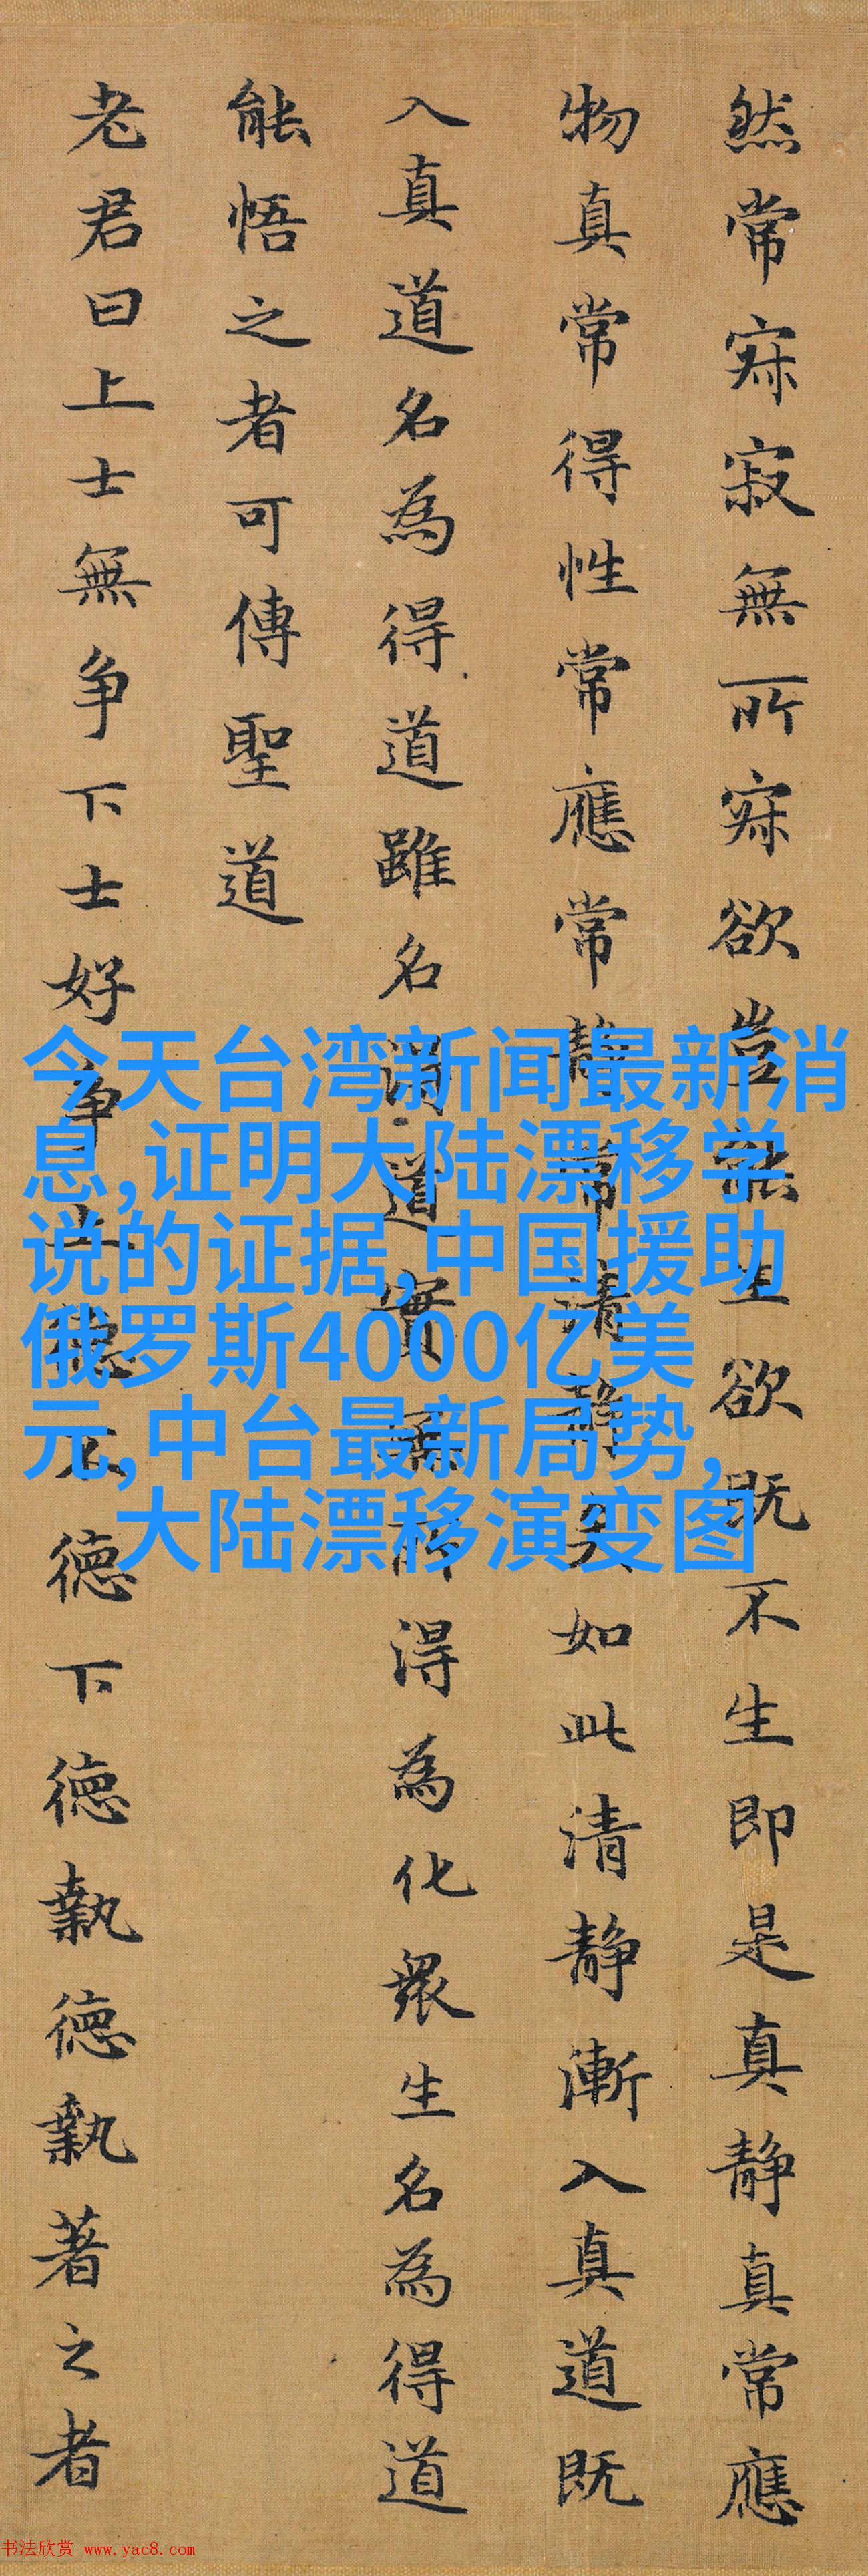 然常寂寂無所寂欲豈能生欲既不生即是真静真常應
物真常得性常應常静常清静矣如此清静漸入真道既
入真道名為得道雖名得道實無所得為化眾生名為得道
能悟之者可傳聖道
老君曰上士無争下士好争上德不德下德執德執著之者
今天台湾新闻最新消
息,证明大陆漂移学
说的证据,中国援助
俄罗斯4000亿美
元,中台最新局势,
大陆漂移演变图
书法欣赏 www.yac8.com